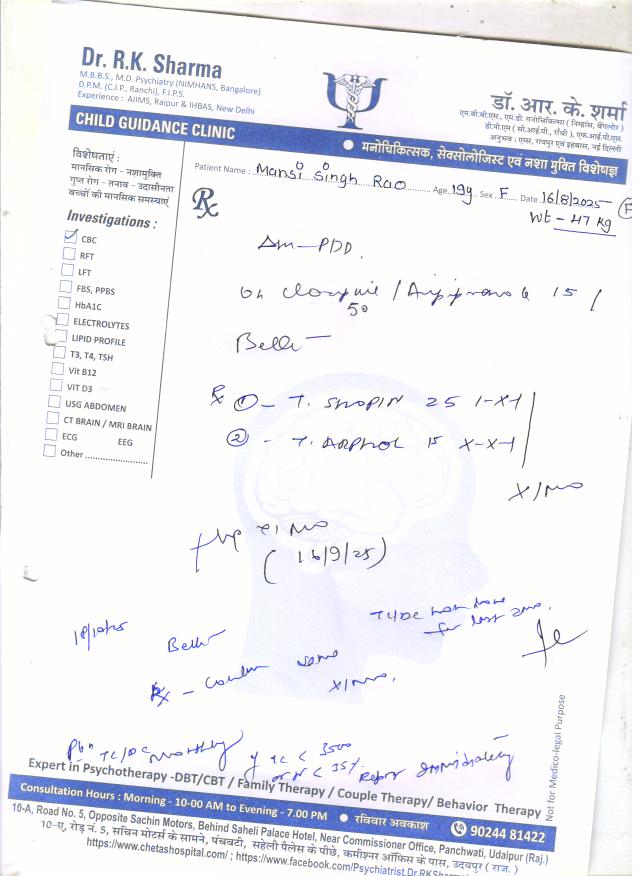 Dr. R.K. Sharma
M.B.B.S., M.D. Psychiatry (NIMHANS, Bangalore)
D.P.M. (C.I.P., Ranchi), F.I.P.S.
Experience : AIIMS, Raipur & IHBAS, New Delhi
डॉ. आर. के. शर्मा
एम.बी.बी.एस., एम.डी. मनोचिकित्सा (निम्हांस, बैंगलोर)
डी.पी.एम (सी.आई.पी., राँची), एफ.आई.पी.एस.
अनुभव : एम्स, रायपुर एवं इहबास, नई दिल्ली
CHILD GUIDANCE CLINIC
● मनोचिकित्सक, सेक्सोलोजिस्ट एवं नशा मुक्ति विशेषज्ञ
विशेषताएं :
मानसिक रोग - नशामुक्ती
गुप्त रोग - तनाव - उदासीनता
बच्चों की मानसिक समस्याएं
Patient Name : Mansi Singh Rao Age 19y Sex F Date 16/8/2025
Wt - 47 kg
Rx
Investigations :
CBC
RFT
LFT
FBS, PPBS
HbA1C
ELECTROLYTES
LIPID PROFILE
T3, T4, TSH
Vit B12
VIT D3
USG ABDOMEN
CT BRAIN / MRI BRAIN
ECG EEG
Other ......................
PDD.
15 /
50
Rx ① - T. SIZOPIN 25 1-X-1
② - T. ARPIZOL 15 X-X-1
X/mo
(16/9/25)
18/10/25
TC/DC not done
for last 2mo.
Rx - same
X/mo.
TC/DC monthly if TC < 3500
or N < 35% Report Immediately
Expert in Psychotherapy -DBT/CBT / Family Therapy / Couple Therapy/ Behavior Therapy
Not for Medico-legal Purpose
Consultation Hours : Morning - 10-00 AM to Evening - 7.00 PM ● रविवार अवकाश 90244 81422
10-A, Road No. 5, Opposite Sachin Motors, Behind Saheli Palace Hotel, Near Commissioner Office, Panchwati, Udaipur (Raj.)
10-ए, रोड़ नं. 5, सचिन मोटर्स के सामने, पंचवटी, सहेली पैलेस के पीछे, कमीश्नर ऑफिस के पास, उदयपुर ( राज. )
https://www.chetashospital.com/ ; https://www.facebook.com/Psychiatrist.Dr.RKSharma